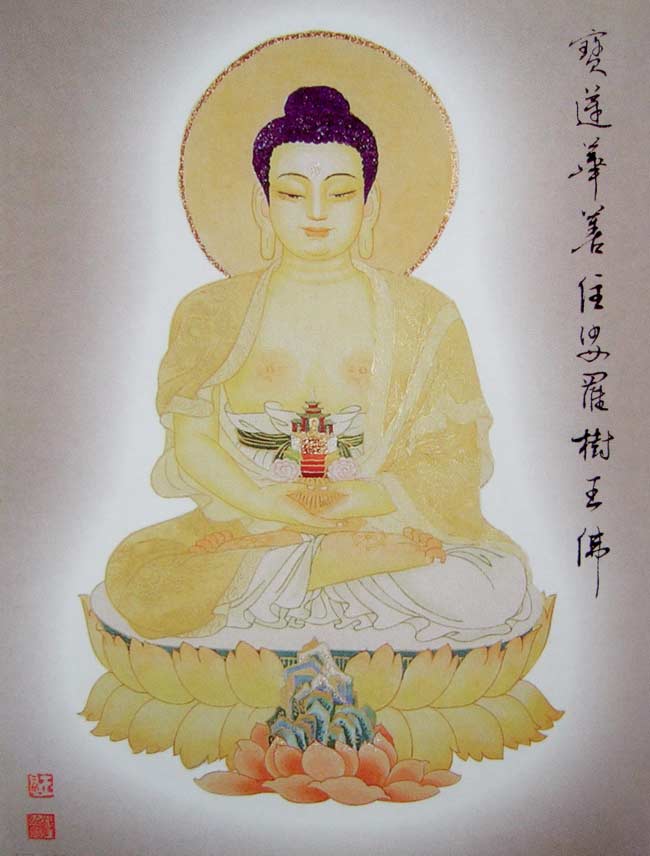 寶蓮華善住娑羅樹王佛